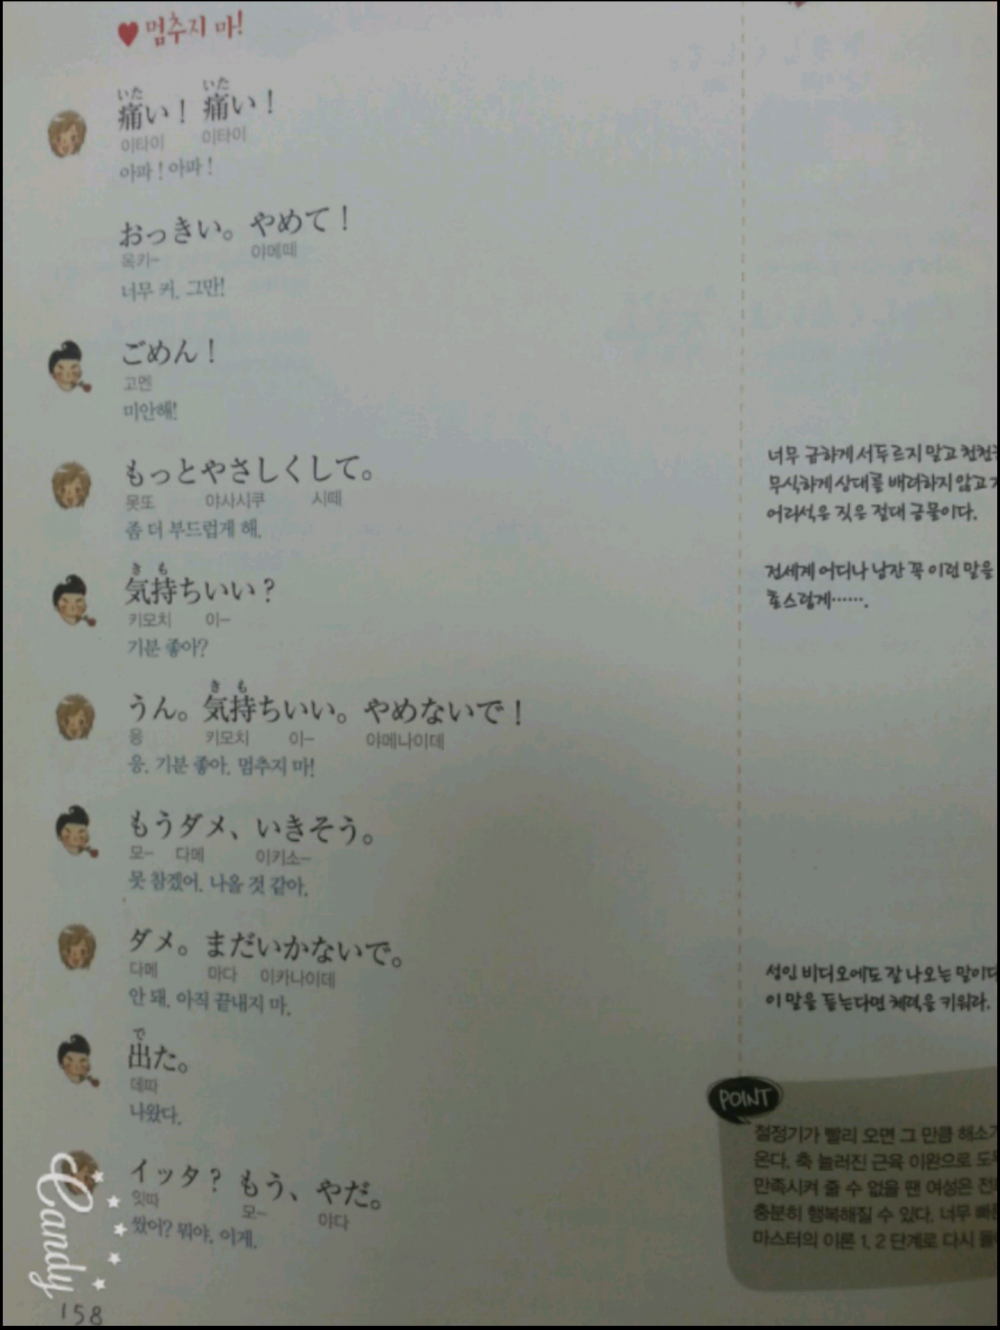 멈추지 마!
いた いた
痛い! 痛い!
이타이 이타이
아파! 아파!
おっきい。やめて!
옥키- 야메떼
너무 커. 그만!
ごめん!
고멘
미안해!
もっとやさしくして。
못또 야사시쿠 시떼
좀 더 부드럽게 해.
き も
気持ちいい?
키모치 이-
기분 좋아?
き も
うん。気持ちいい。やめないで!
응 키모치 이- 야메나이데
응. 기분 좋아. 멈추지 마!
もうダメ、いきそう。
모- 다메 이키소-
못 참겠어. 나올 것 같아.
ダメ。まだいかないで。
다메 마다 이카나이데
안 돼. 아직 끝내지 마.
で
出た。
데따
나왔다.
イッタ? もう、やだ。
잇따 모- 야다
쌌어? 뭐야, 이게.
Candy
158
너무 급하게 서두르지 말고
무식하게 상대를 배려하지 않고
어리석은 짓은 절대 금물이다.
전세계 어디나 남잔 꼭 이런 말을
촌스럽게…….
성인 비디오에도 잘 나오는 말이다
이 말을 듣는다면 체력을 키워라.
POINT
절정기가 빨리 오면 그 만큼 해소
온다. 축 늘어진 근육 이완으로
만족시켜 줄 수 없을 땐 여성은
충분히 행복해질 수 있다. 너무
마스터의 이론 1, 2 단계로 다시